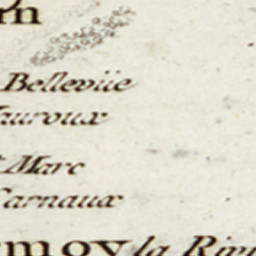 m
Belleviie
auroux
Marc
Carnaux
moy la Riv